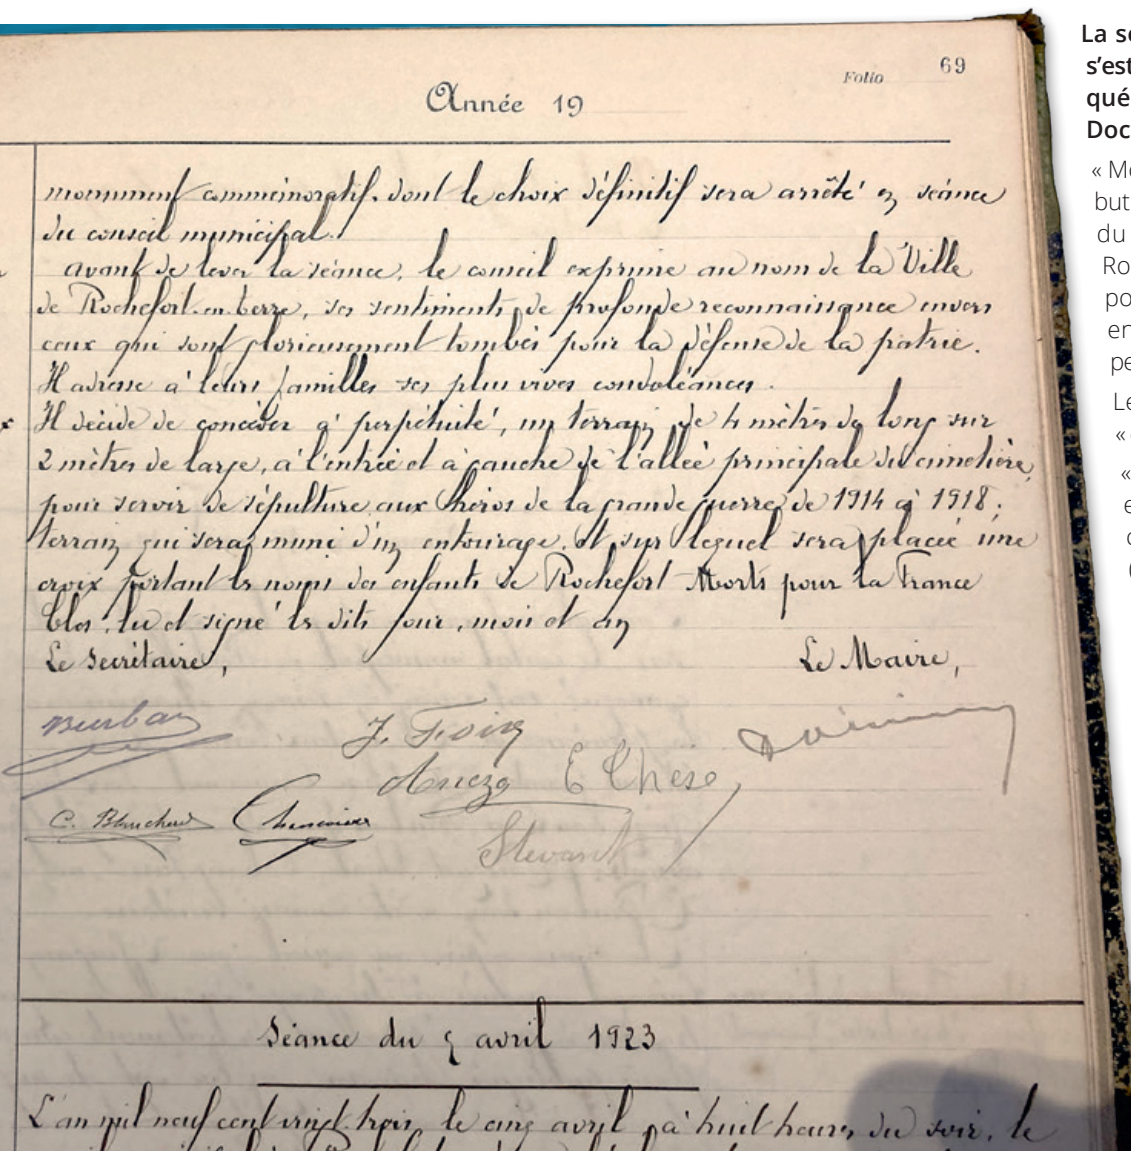 Folio 69
Année 19
monument commémoratif. dont le choix définitif sera arrêté en séance
du conseil municipal.
avant de lever la séance, le conseil exprime au nom de la Ville
de Rochefort-en-terre, ses sentiments de profonde reconnaissance envers
ceux qui sont glorieusement tombés pour la défense de la patrie.
Il adresse à leurs familles ses plus vives condoléances.
Il décide de concéder à perpétuité, un terrain de 4 mètres de long sur
2 mètres de large, à l'entrée et à gauche de l'allée principale du cimetière,
pour servir de sépulture aux héros de la grande guerre de 1914 à 1918;
terrain qui sera muni d'un entourage, et sur lequel sera placée une
croix portant les noms des enfants de Rochefort Morts pour la France
Clos, lu et signé les dits jour, mois et an
Le Secrétaire,
Le Maire,
Burban
J. Foin
E Chese
C. Blanchard
Séance du 5 avril 1923
L'an mil neuf cent vingt trois, le cinq avril, à huit heures du soir, le
La s
s'est
qué
Doc
« M
but
du
Ro
po
en
pe
Le
«
«